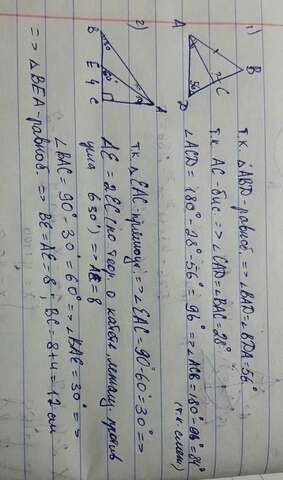 1)
A
B
C
D
56°
?
т.к. △ABD-равноб. => ∠BAD=∠BDA=56°
т.к. AC-бис => ∠CAD=∠BAC=28°
∠ACD = 180°-28°-56° = 96° => ∠ACB=180°-96°=84°
(т.к. смежн)
2)
B
E
4
C
A
30°
60°
т.к. △EAC-прямоуг => ∠EAC=90°-60°=30° =>
AE = 2EC (по теор. о катете, лежащ. против
угла в 30°) => AE=8
∠BAC = 90°-30°=60° => ∠BAE=30° =>
=> △BEA-равноб. => BE=AE=8; BC=8+4=12 см